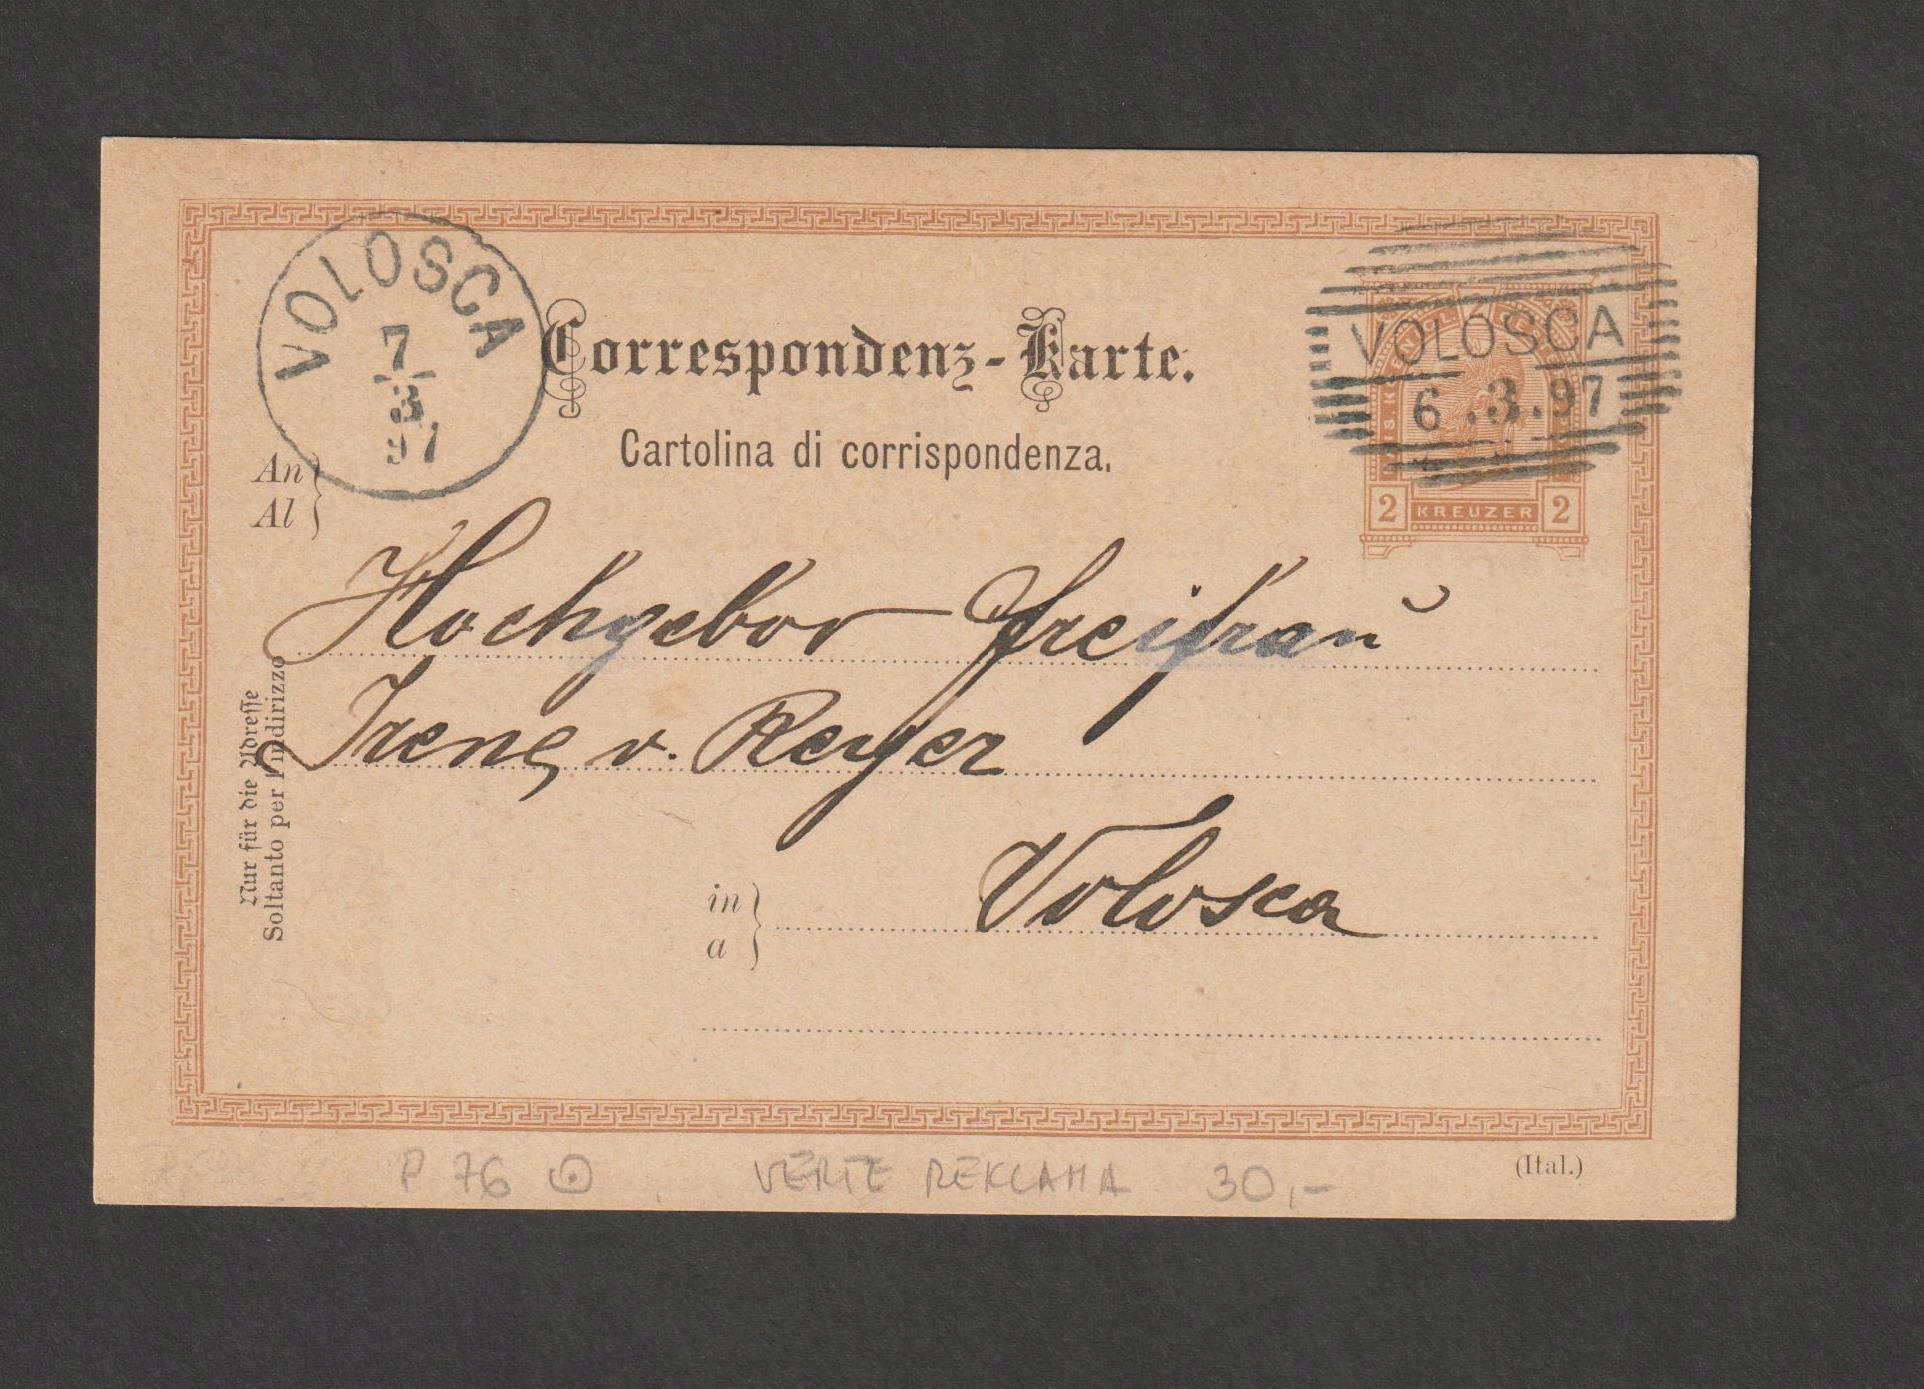 VOLOSCA
7
3
97
Correspondenz-Karte.
Cartolina di corrispondenza.
VOLOSCA
6.3.97
2 KREUZER 2
An
Al
Hochgebor Freifrau
Irene v. Reyer
in
a
Volosca
Nur für die Adresse
Soltanto per l'indirizzo
P 76
VERTE REKLAMA 30,-
(Ital.)